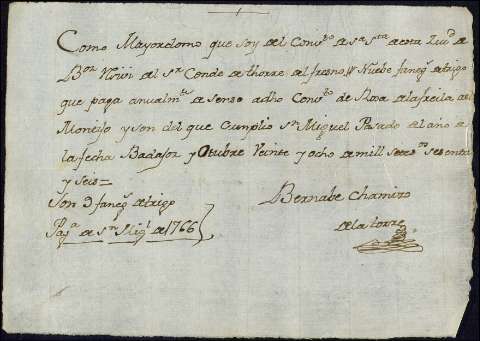 Como Mayordomo que soy del Conv.to de S.ta de esta Ziu.d de
B.oz Reciví del S.r Conde de thorre el fresno Nuebe faneg.s de trigo
que paga anualm.te de Senso a dho Conv.to de Rosa de la freila de
Monexo y son del que Cumplio S.n Miguel Pasado del año de
la fecha Badajoz y Otubre Veinte y Ocho de mill Sete.os sesenta
y Seis =
Son 9 faneg.s de trigo
Pag.a de S.n Mig.l de 1766
Bernabe Chamizo
de la torre